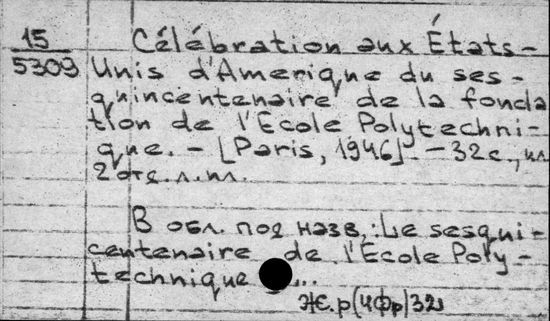 15
5309
Célébration aux États-
Unis d'Amerique du ses-
quincentenaire de la fonda
tion de l'Ecole Polytechni-
que. - [Paris, 1946]. - 32 с., ил.
2 отд. л. ил.
В обл. под назв.: Le sesqui-
centenaire de l'Ecole Poly-
technique ...
Ж.р(4Фр)32